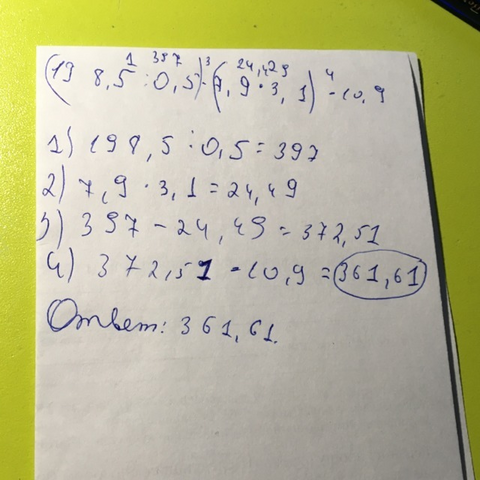 1 397 3 24,429 4
(19 8,5 : 0,5) - (7,9 · 3, 1) - 10,9
1) 198,5 : 0,5 = 397
2) 7,9 · 3,1 = 24,49
3) 397 - 24,49 = 372,51
4) 372,51 - 10,9 = 361,61
Ответ: 361,61.